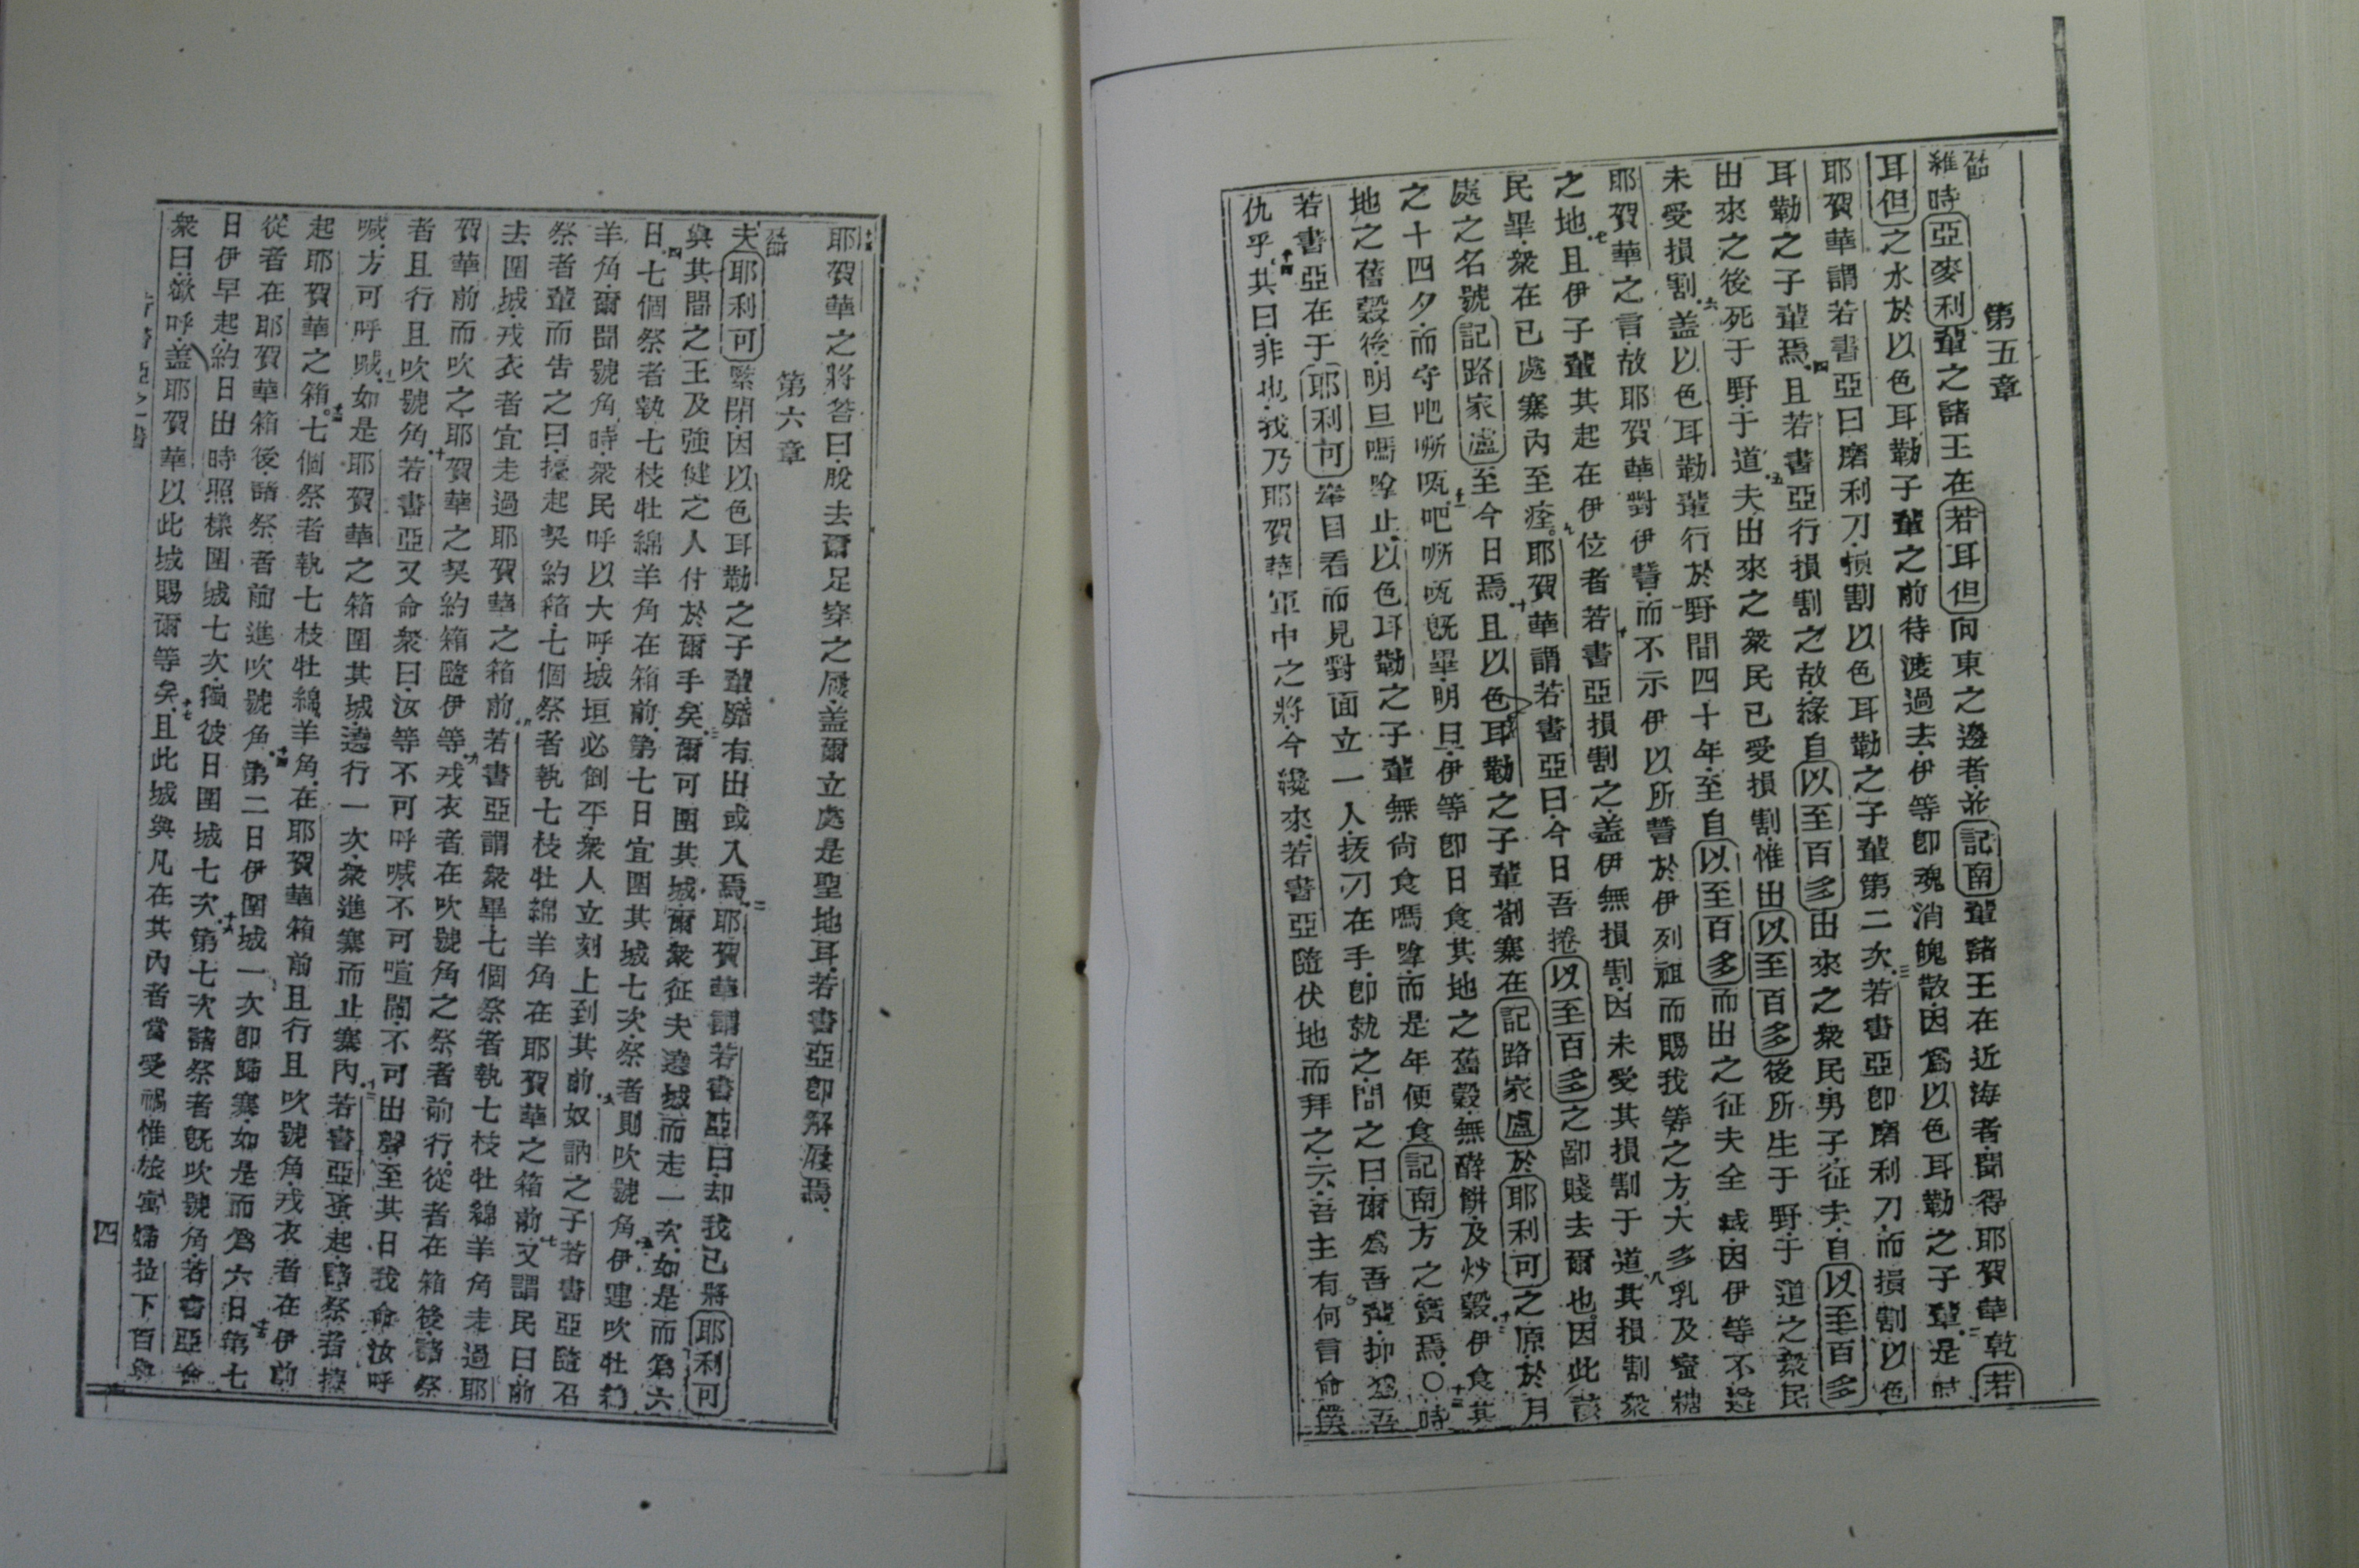 第五章
維時亞麥利輩之諸王在若耳但向東之邊者並記南輩諸王在近海者聞得耶賀華乾若
耳但之水於以色耳勒子輩之前待渡過去伊等即魂消魄散因爲以色耳勒之子輩二是時
耶賀華謂若書亞曰磨利刀損割以色耳勒之子輩第二次三若書亞即磨利刀而損割以色
耳勒之子輩焉四且若書亞行損割之故緣自以至百多出來之衆民男子征夫自以至百多
出來之後死于野于道五夫出來之衆民已受損割惟出以至百多後所生于野于道之衆民
未受損割六蓋以色耳勒輩行於野間四十年至自以至百多而出之征夫全滅因伊等不遵
耶賀華之言故耶賀華對伊誓而不示伊以所誓於伊列祖而賜我等之方大多乳及蜜糖
之地七且伊子輩其起在伊位者若書亞損割之蓋伊無損割因未受其損割于道八其損割衆
民畢衆在已處寨內至痊九耶賀華謂若書亞曰今日吾捲以至百多之鄙賤去爾也因此該
處之名號記路家盧至今日焉十且以色耳勒之子輩劄寨在記路家盧於耶利可之原於月
之十四夕而守吧㗭咓十一吧㗭咓既畢明日伊等即日食其地之舊穀無酵餅及炒穀十二伊食其
地之舊穀後明旦嗎嗱止以色耳勒之子輩無尚食嗎嗱而是年便食記南方之寶焉○十三時
若書亞在于耶利可舉目看而見對面立一人拔刀在手即就之問之曰爾爲吾輩抑爲吾
仇乎十四其曰非也我乃耶賀華軍中之將今纔來若書亞隨伏地而拜之云吾主有何言命僕
十五耶賀華之將答曰脫去爾足穿之屐蓋爾立處是聖地耳若書亞即解屐焉
第六章
夫耶利可緊閉因以色耳勒之子輩靡有出或入焉二耶賀華謂若書亞曰却我已將耶利可
與其間之王及強健之人付於爾手矣三爾可圍其城爾衆征夫遶城而走一次如是而爲六
日四七個祭者執七枝牡綿羊角在箱前第七日宜圍其城七次祭者則吹號角五伊連吹牡綿
羊角爾聞號角時衆民呼以大呼城垣必倒平衆人立刻上到其前六奴訥之子若書亞隨召
祭者輩而告之曰擡起契約箱七個祭者執七枝牡綿羊角在耶賀華之箱前七又謂民曰前
去圍城戎衣者宜走過耶賀華之箱前八若書亞謂衆畢七個祭者執七枝牡綿羊角走過耶
賀華前而吹之耶賀華之契約箱隨伊等九戎衣者在吹號角之祭者前行從者在箱後諸祭
者且行且吹號角十若書亞又命衆曰汝等不可呼喊不可喧鬧不可出聲至其日我命汝呼
喊方可呼喊十一如是耶賀華之箱圍其城遶行一次衆進寨而止寨內十二若書亞蚤起諸祭者擡
起耶賀華之箱十三七個祭者執七枝牡綿羊角在耶賀華箱前且行且吹號角戎衣者在伊前
從者在耶賀華箱後諸祭者前進吹號角十四第二日伊圍城一次即歸寨如是而爲六日十五第七
日伊早起約日出時照樣圍城七次獨彼日圍城七次十六第七次諸祭者既吹號角若書亞命
衆曰歡呼蓋耶賀華以此城賜爾等矣十七且此城與凡在其內者當受禍惟旅寓婦拉下百與
若書亞之書
四